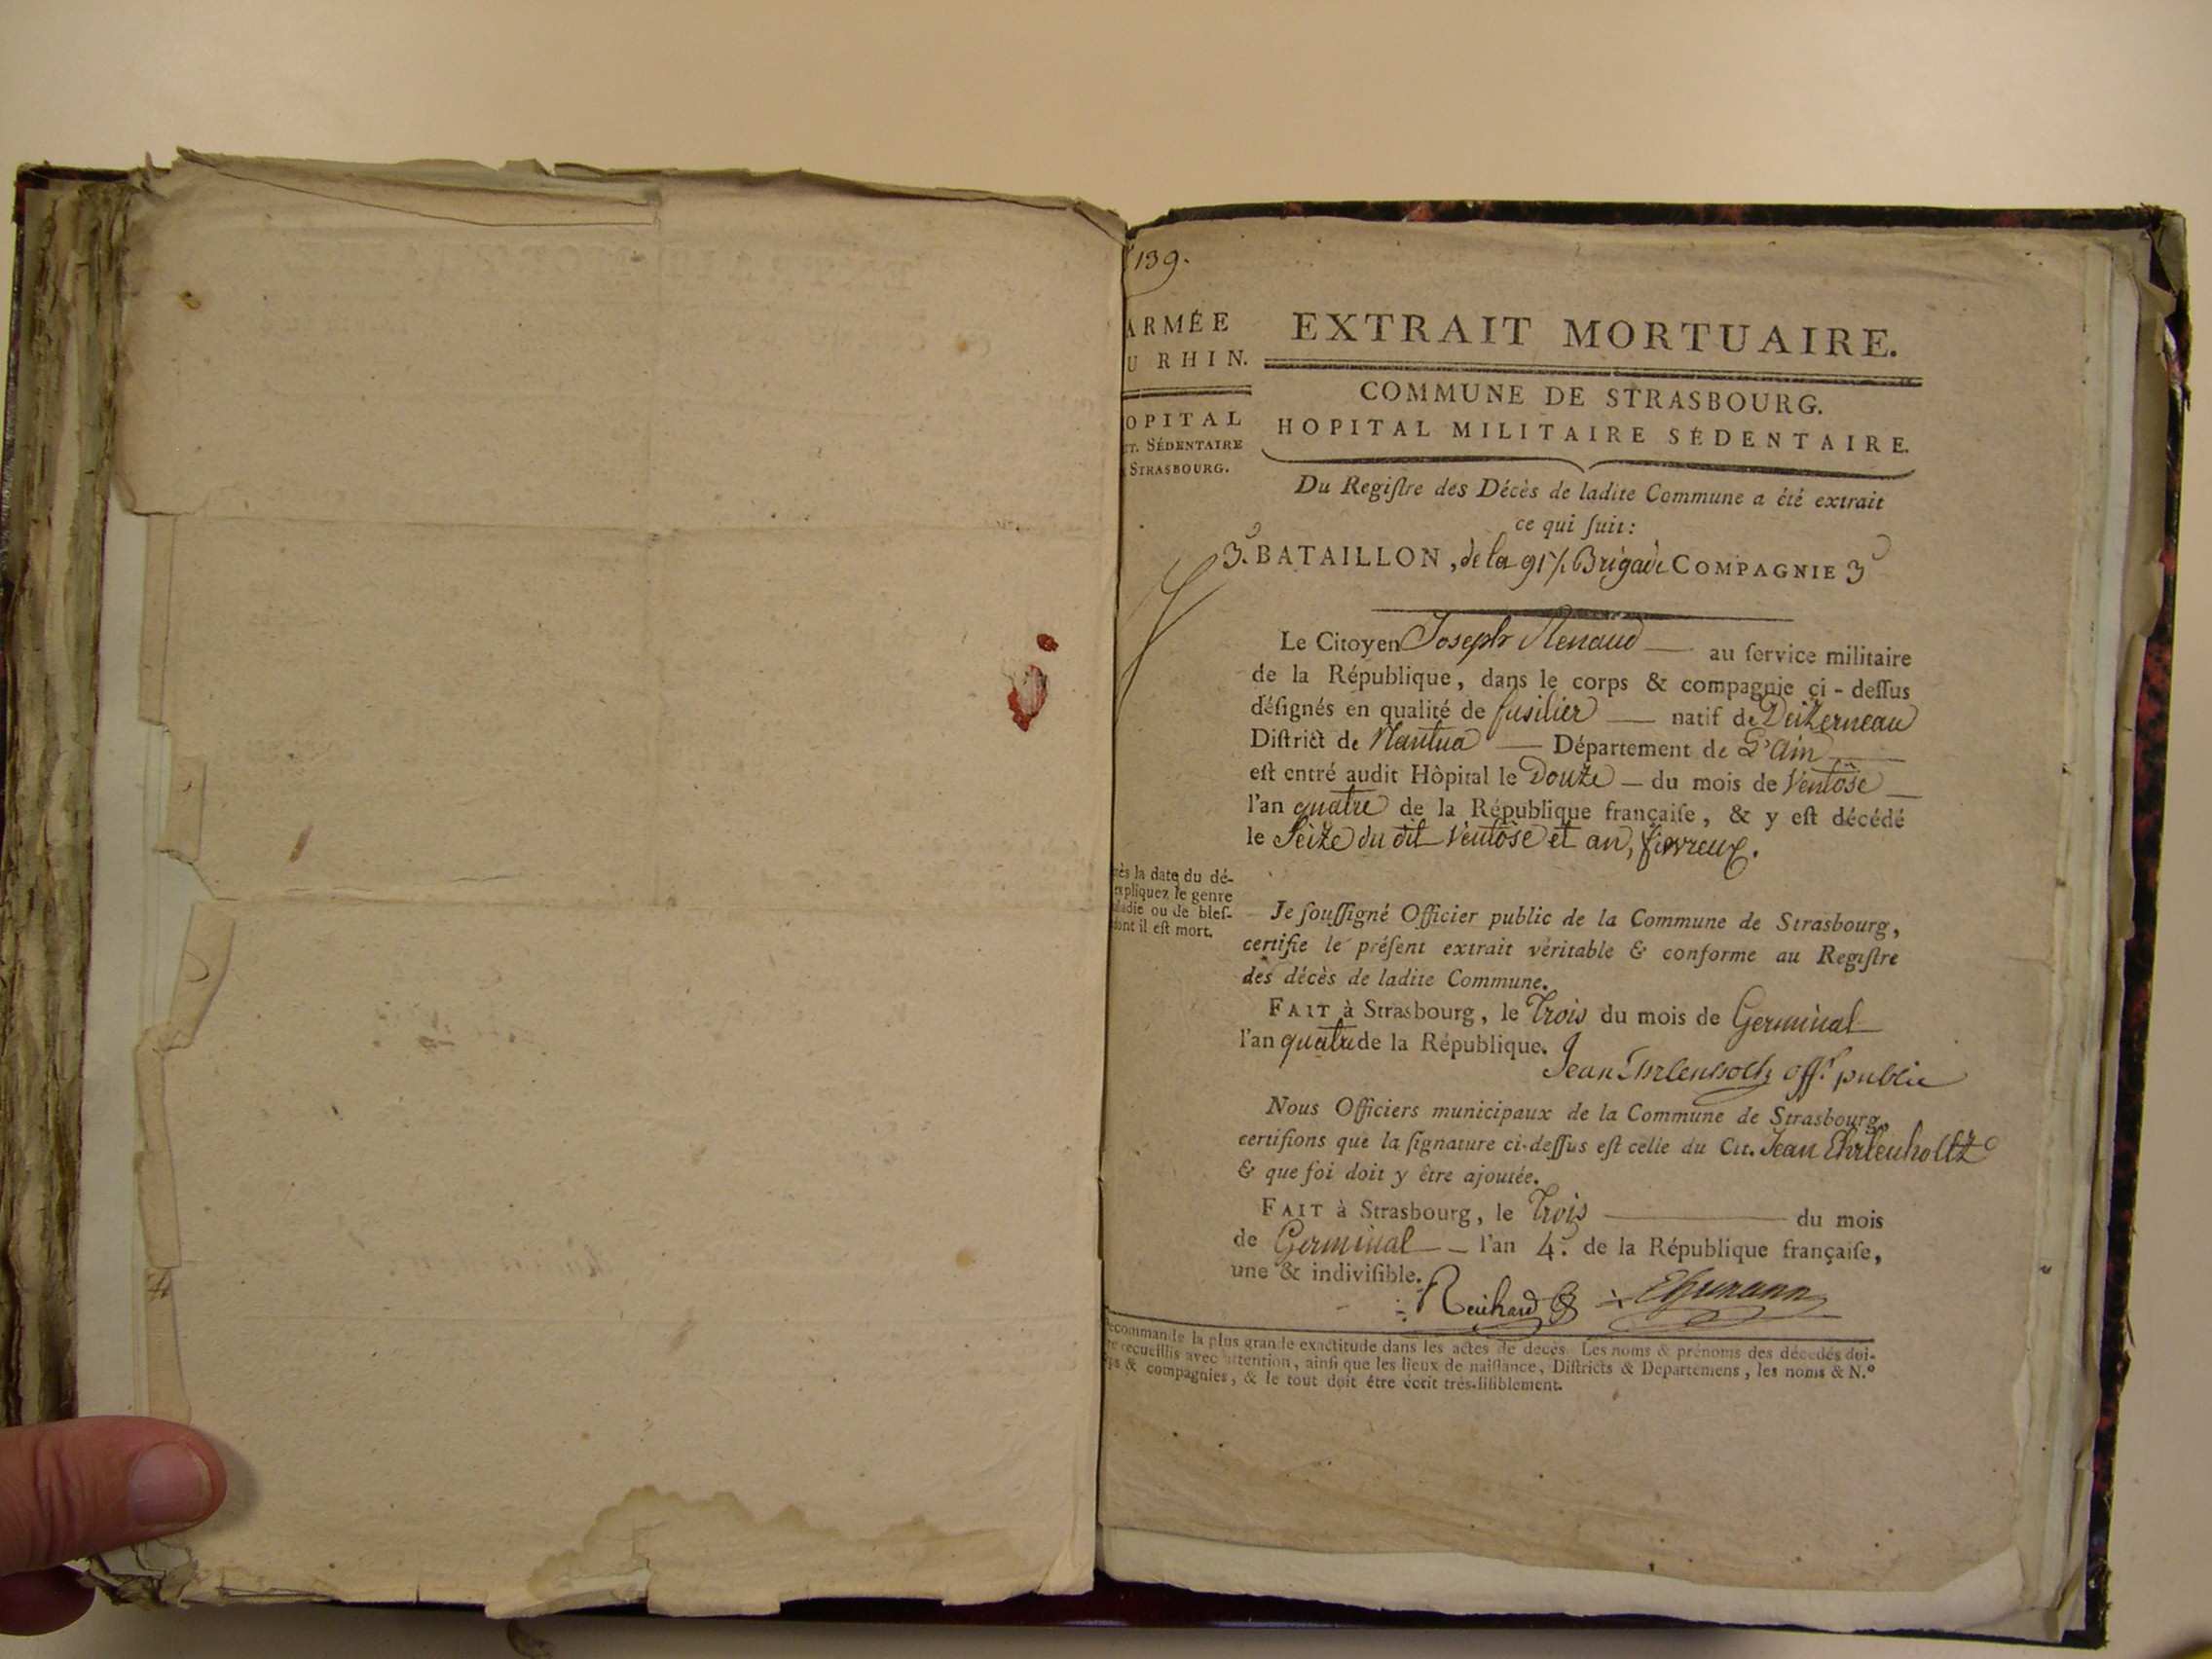 139.
ARMÉE
U RHIN.
OPITAL
ET. SÉDENTAIRE
STRASBOURG.
EXTRAIT MORTUAIRE.
COMMUNE DE STRASBOURG.
HOPITAL MILITAIRE SÉDENTAIRE.
Du Regiſtre des Décès de ladite Commune a été extrait
ce qui ſuit:
3.e BATAILLON, de la 91e/ Brigade COMPAGNIE 3e
Le Citoyen Joseph Renaud — au ſervice militaire
de la République, dans le corps & compagnie çi-deſſus
déſignés en qualité de fusilier — natif de Deizerneau
Diſtrict de Nantua — Département de L'Ain —
eſt entré audit Hôpital le Douze — du mois de Ventôse —
l'an quatre de la République françaiſe, & y eſt décédé
le Seize du dit Ventôse et an, fievreux.
ès la date du dé-
xpliquez le genre
ladie ou de bleſ-
dont il eſt mort.
Je ſouſſigné Officier public de la Commune de Strasbourg,
certifie le préſent extrait véritable & conforme au Regiſtre
des décès de ladite Commune.
FAIT à Strasbourg, le Trois du mois de Germinal
l'an quatre de la République.
Jean Ehrlenholtz off.r public
Nous Officiers municipaux de la Commune de Strasbourg,
certifions que la ſignature ci-deſſus eſt celle du Cit. Jean Ehrlenholtz
& que foi doit y être ajoutée.
FAIT à Strasbourg, le Trois — du mois
de Germinal — l'an 4.e de la République françaiſe,
une & indiviſible.
Reichard Ehrmann
ecommande la plus grande exactitude dans les actes de décès. Les noms & prénoms des décédés doi-
re recueillis avec attention, ainſi que les lieux de naiſſance, Diſtricts & Départemens, les noms & N.º
ps & compagnies, & le tout doit être écrit très-liſiblement.